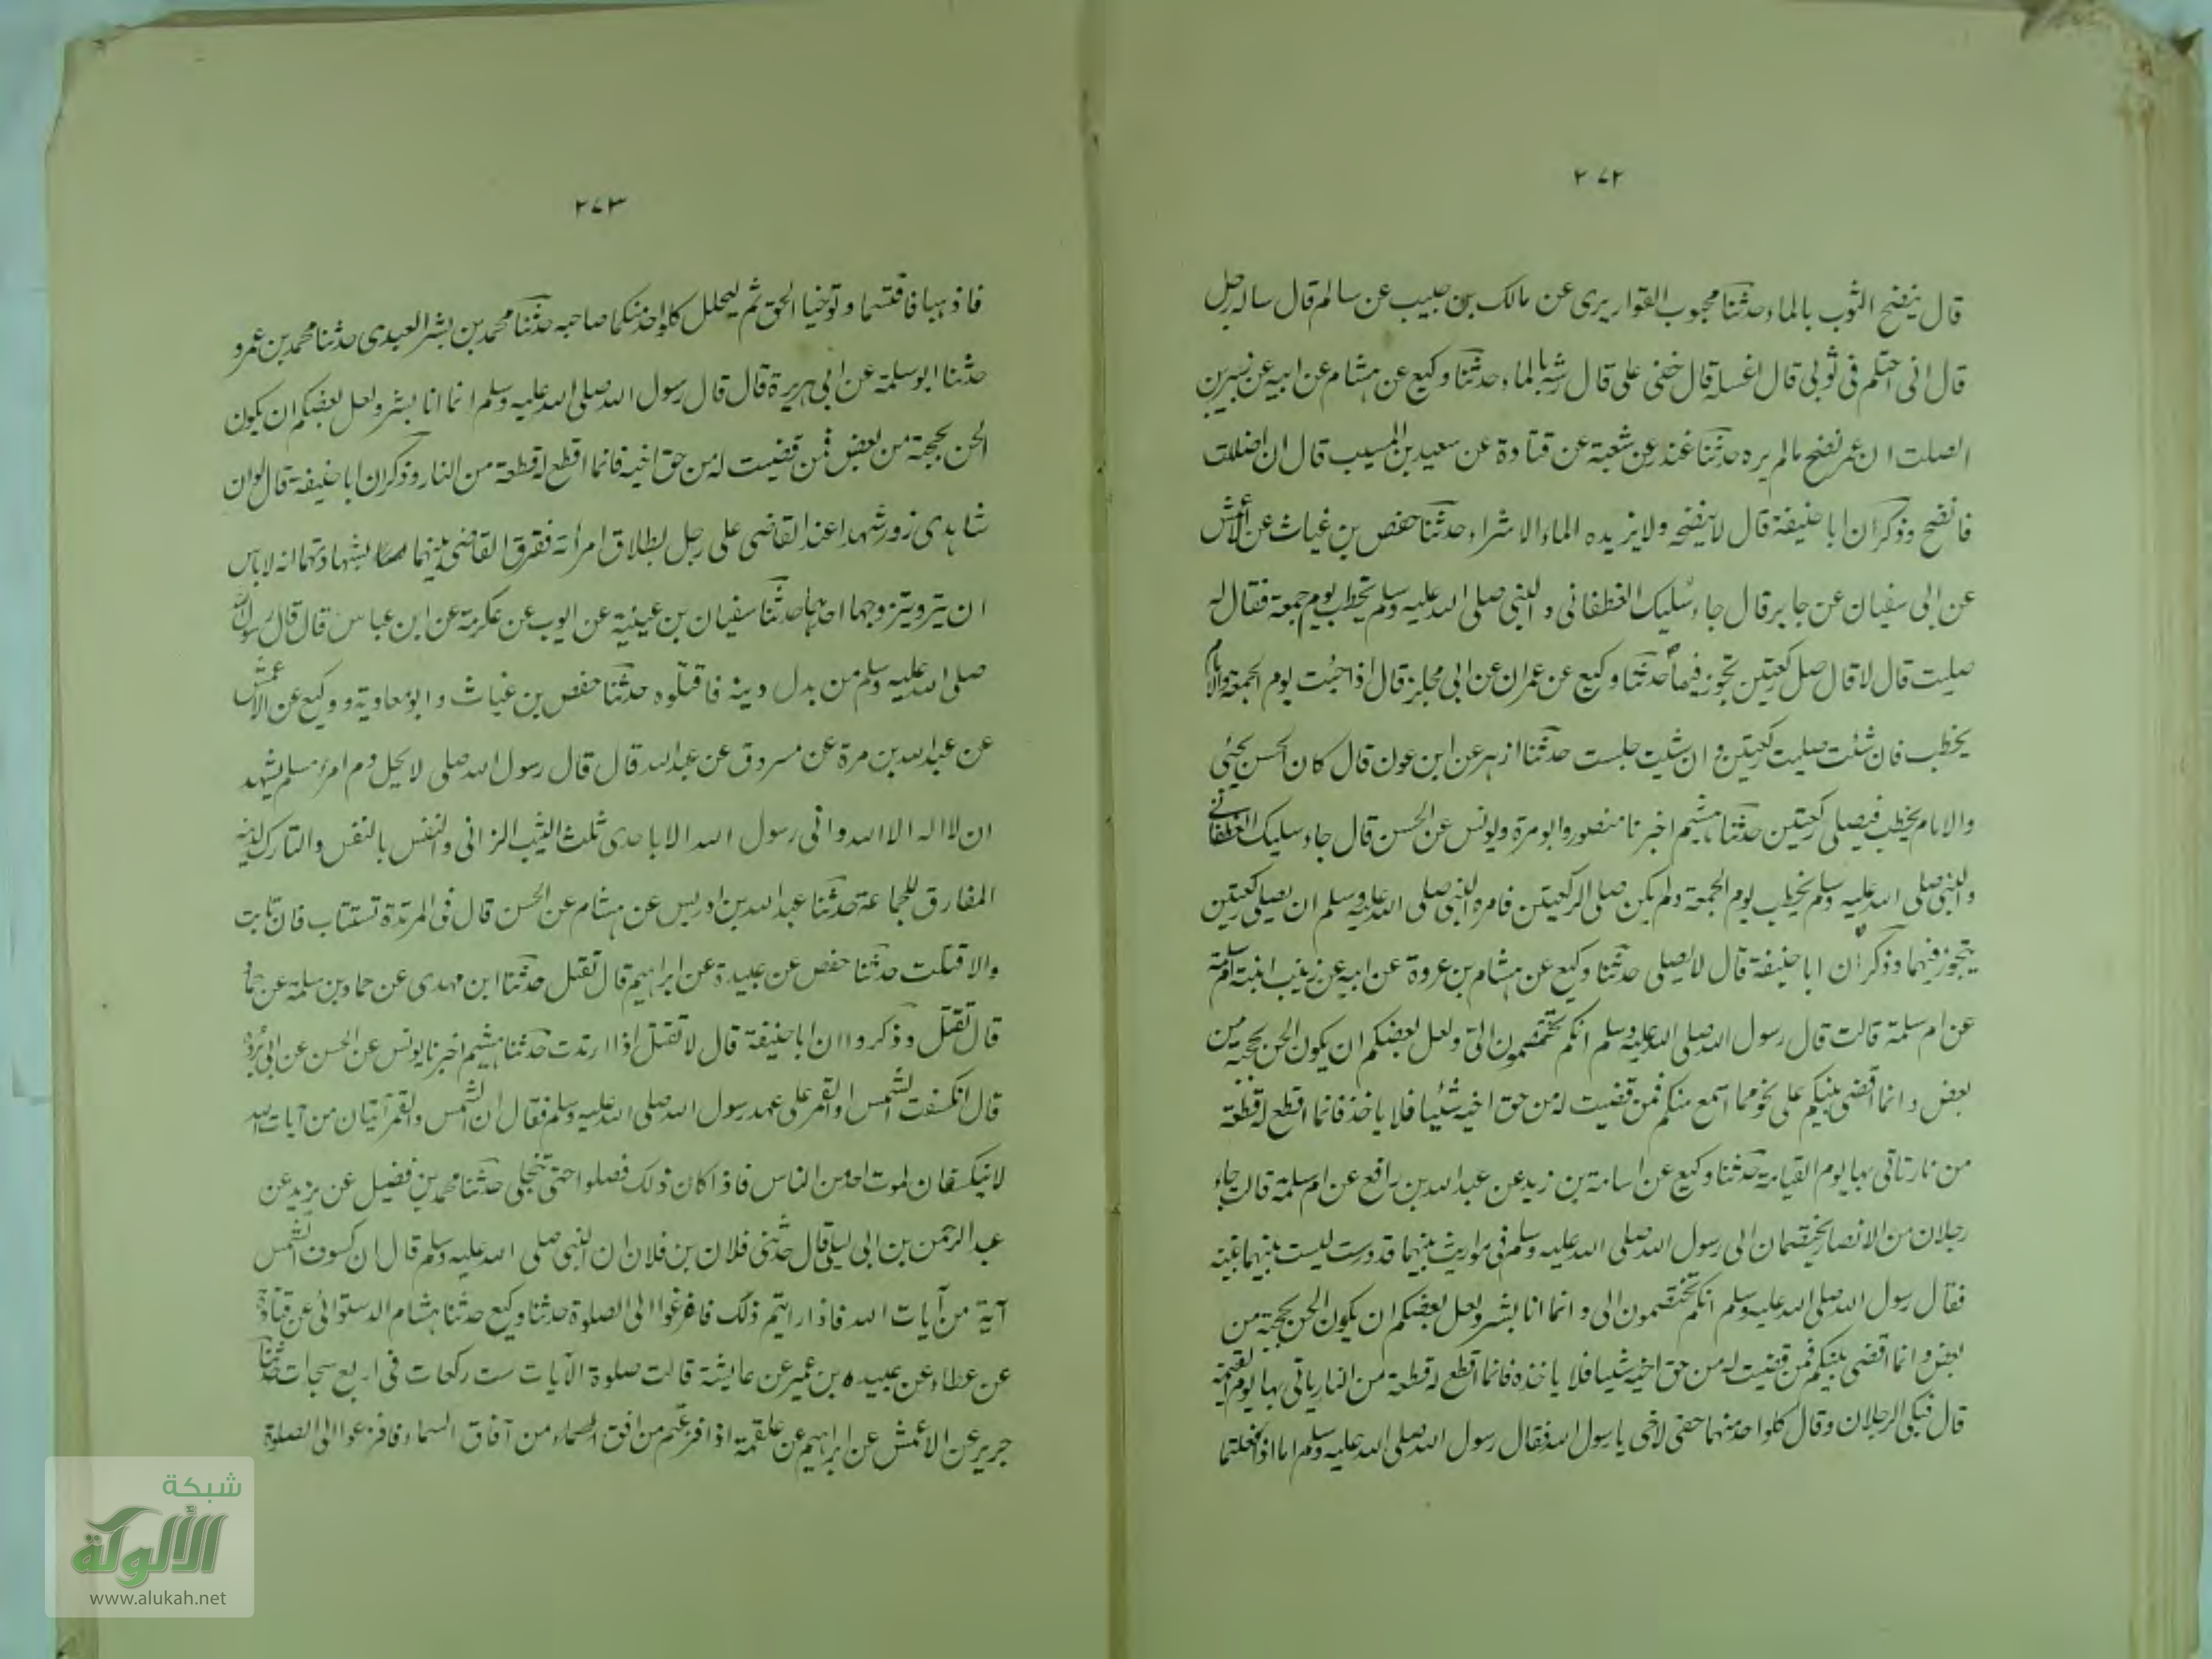 ٢٧٢
قال ينضح الثوب بالماء حدثنا محبوب القواريرى عن مالك بن حبيب عن سالم قال ساله رجل
قال انى احتلم فى ثوبى قال اغسله قال خفى على قال رشه بالماء حدثنا وكيع عن هشام عن ابيه عن زبيد بن
الصلت ان عمر نضح مالم يره حدثنا غندر عن شعبة عن قتادة عن سعيد بن المسيب قال ان اضللت
فانضح وذكر ان ابا حنيفة قال لا ينضحه ولا يزيده الماء الا شراء حدثنا حفص بن غياث عن الاعمش
عن ابى سفيان عن جابر قال جاء سليك الغطفانى والنبى صلى الله عليه وسلم يخطب يوم جمعة فقال له
صليت قال لا قال صل ركعتين تجوز فيهما حدثنا وكيع عن عمران عن ابى مجلز قال اذا جئت يوم الجمعة والامام
يخطب فان شئت صليت ركعتين وان شيت جلست حدثنا ازهر عن ابن عون قال كان الحسن يجئى
والامام يخطب فيصلى ركعتين حدثنا هشيم اخبرنا منصور وابو مرة ويونس عن الحسن قال جاء سليك الغطفانى
والنبى صلى الله عليه وسلم يخطب يوم الجمعة ولم يكن صلى الركعتين فامره النبى صلى الله عليه وسلم ان يصلى ركعتين
يتجوز فيهما وذكر ان ابا حنيفة قال لا يصلى حدثنا وكيع عن هشام بن عروة عن ابيه عن زينب ابنة ام سلمة
عن ام سلمة قالت قال رسول الله صلى الله عليه وسلم انكم تختصمون الى ولعل بعضكم ان يكون الحن بحجته من
بعض وانما اقضى بينكم على نحو مما اسمع منكم فمن قضيت له من حق اخيه شيئا فلا ياخذ فانما اقطع له قطعة
من نار تاتى بها يوم القيامة حدثنا وكيع عن اسامة بن زيد عن عبد الله بن رافع عن ام سلمة قالت جاء
رجلان من الانصار يختصمان الى رسول الله صلى الله عليه وسلم فى مواريث بينهما قد درست ليست بينهما بينة
فقال رسول الله صلى الله عليه وسلم انكم تختصمون الى وانما انا بشر ولعل بعضكم ان يكون الحن بحجته من
بعض وانما اقضى بينكم فمن قضيت له من حق اخيه شيئا فلا ياخذه فانما اقطع له قطعة من النار ياتى بها يوم القيمة
قال فبكى الرجلان وقال كلواحد منهما حقى لاخى يا رسول الله فقال رسول الله صلى الله عليه وسلم اما اذ فعلتما
٢٧٣
فاذهبا فاقتسما وتوخيا الحق ثم ليحلل كلواحد منكما صاحبه حدثنا محمد بن بشر العبدى حدثنا محمد بن عمرو
حدثنا ابو سلمة عن ابى هريرة قال قال رسول الله صلى الله عليه وسلم انما انا بشر ولعل بعضكم ان يكون
الحن بحجته من بعض فمن قضيت له من حق اخيه فانما اقطع له قطعة من النار وذكر ان ابا حنيفة قال لوان
شاهدى زور شهدا عند القاضى على رجل بطلاق امرأته ففرق القاضى بينهما بشهادتهما انه لا باس
ان يتزويتزوجها احدهما حدثنا سفيان بن عيينة عن ايوب عن عكرمة عن ابن عباس قال قال رسول الله
صلى الله عليه وسلم من بدل دينه فاقتلوه حدثنا حفص بن غياث وابو معاوية ووكيع عن الاعمش
عن عبد الله بن مرة عن مسروق عن عبد الله قال قال رسول الله صلى لا يحل دم امرئ مسلم يشهد
ان لا اله الا الله وانى رسول الله الا باحدى ثلث الثيب الزانى والنفس بالنفس والتارك لدينه
المفارق للجماعة حدثنا عبد الله بن ادريس عن هشام عن الحسن قال فى المرتدة تستتاب فان تابت
والا قتلت حدثنا حفص عن عبيدة عن ابراهيم قال تقتل حدثنا ابن مهدى عن حماد بن سلمة عن حماد
قال تقتل وذكروا ان ابا حنيفة قال لا تقتل اذا ارتدت حدثنا هشيم اخبرنا يونس عن الحسن عن ابى بكرة
قال انكسفت الشمس او القمر على عهد رسول الله صلى الله عليه وسلم فقال ان الشمس والقمر آيتان من آيات الله
لا ينكسفان لموت احد من الناس فاذا كان ذلك فصلوا حتى تنجلى حدثنا محمد بن فضيل عن يزيد عن
عبد الرحمن بن ابى ليلى قال حدثنى فلان بن فلان ان النبى صلى الله عليه وسلم قال ان كسوف الشمس
آية من آيات الله فاذا رايتم ذلك فافزعوا الى الصلوة حدثنا وكيع حدثنا هشام الدستوائى عن قتادة
عن عطاء عن عبيد بن عمير عن عايشة قالت صلوة الآيات ست ركعات فى اربع سجدات حدثنا
جرير عن الاعمش عن ابراهيم عن علقمة اذا فزعتم من افق السماء من آفاق السماء فافزعوا الى الصلوة
شبكة
الألوكة
www.alukah.net